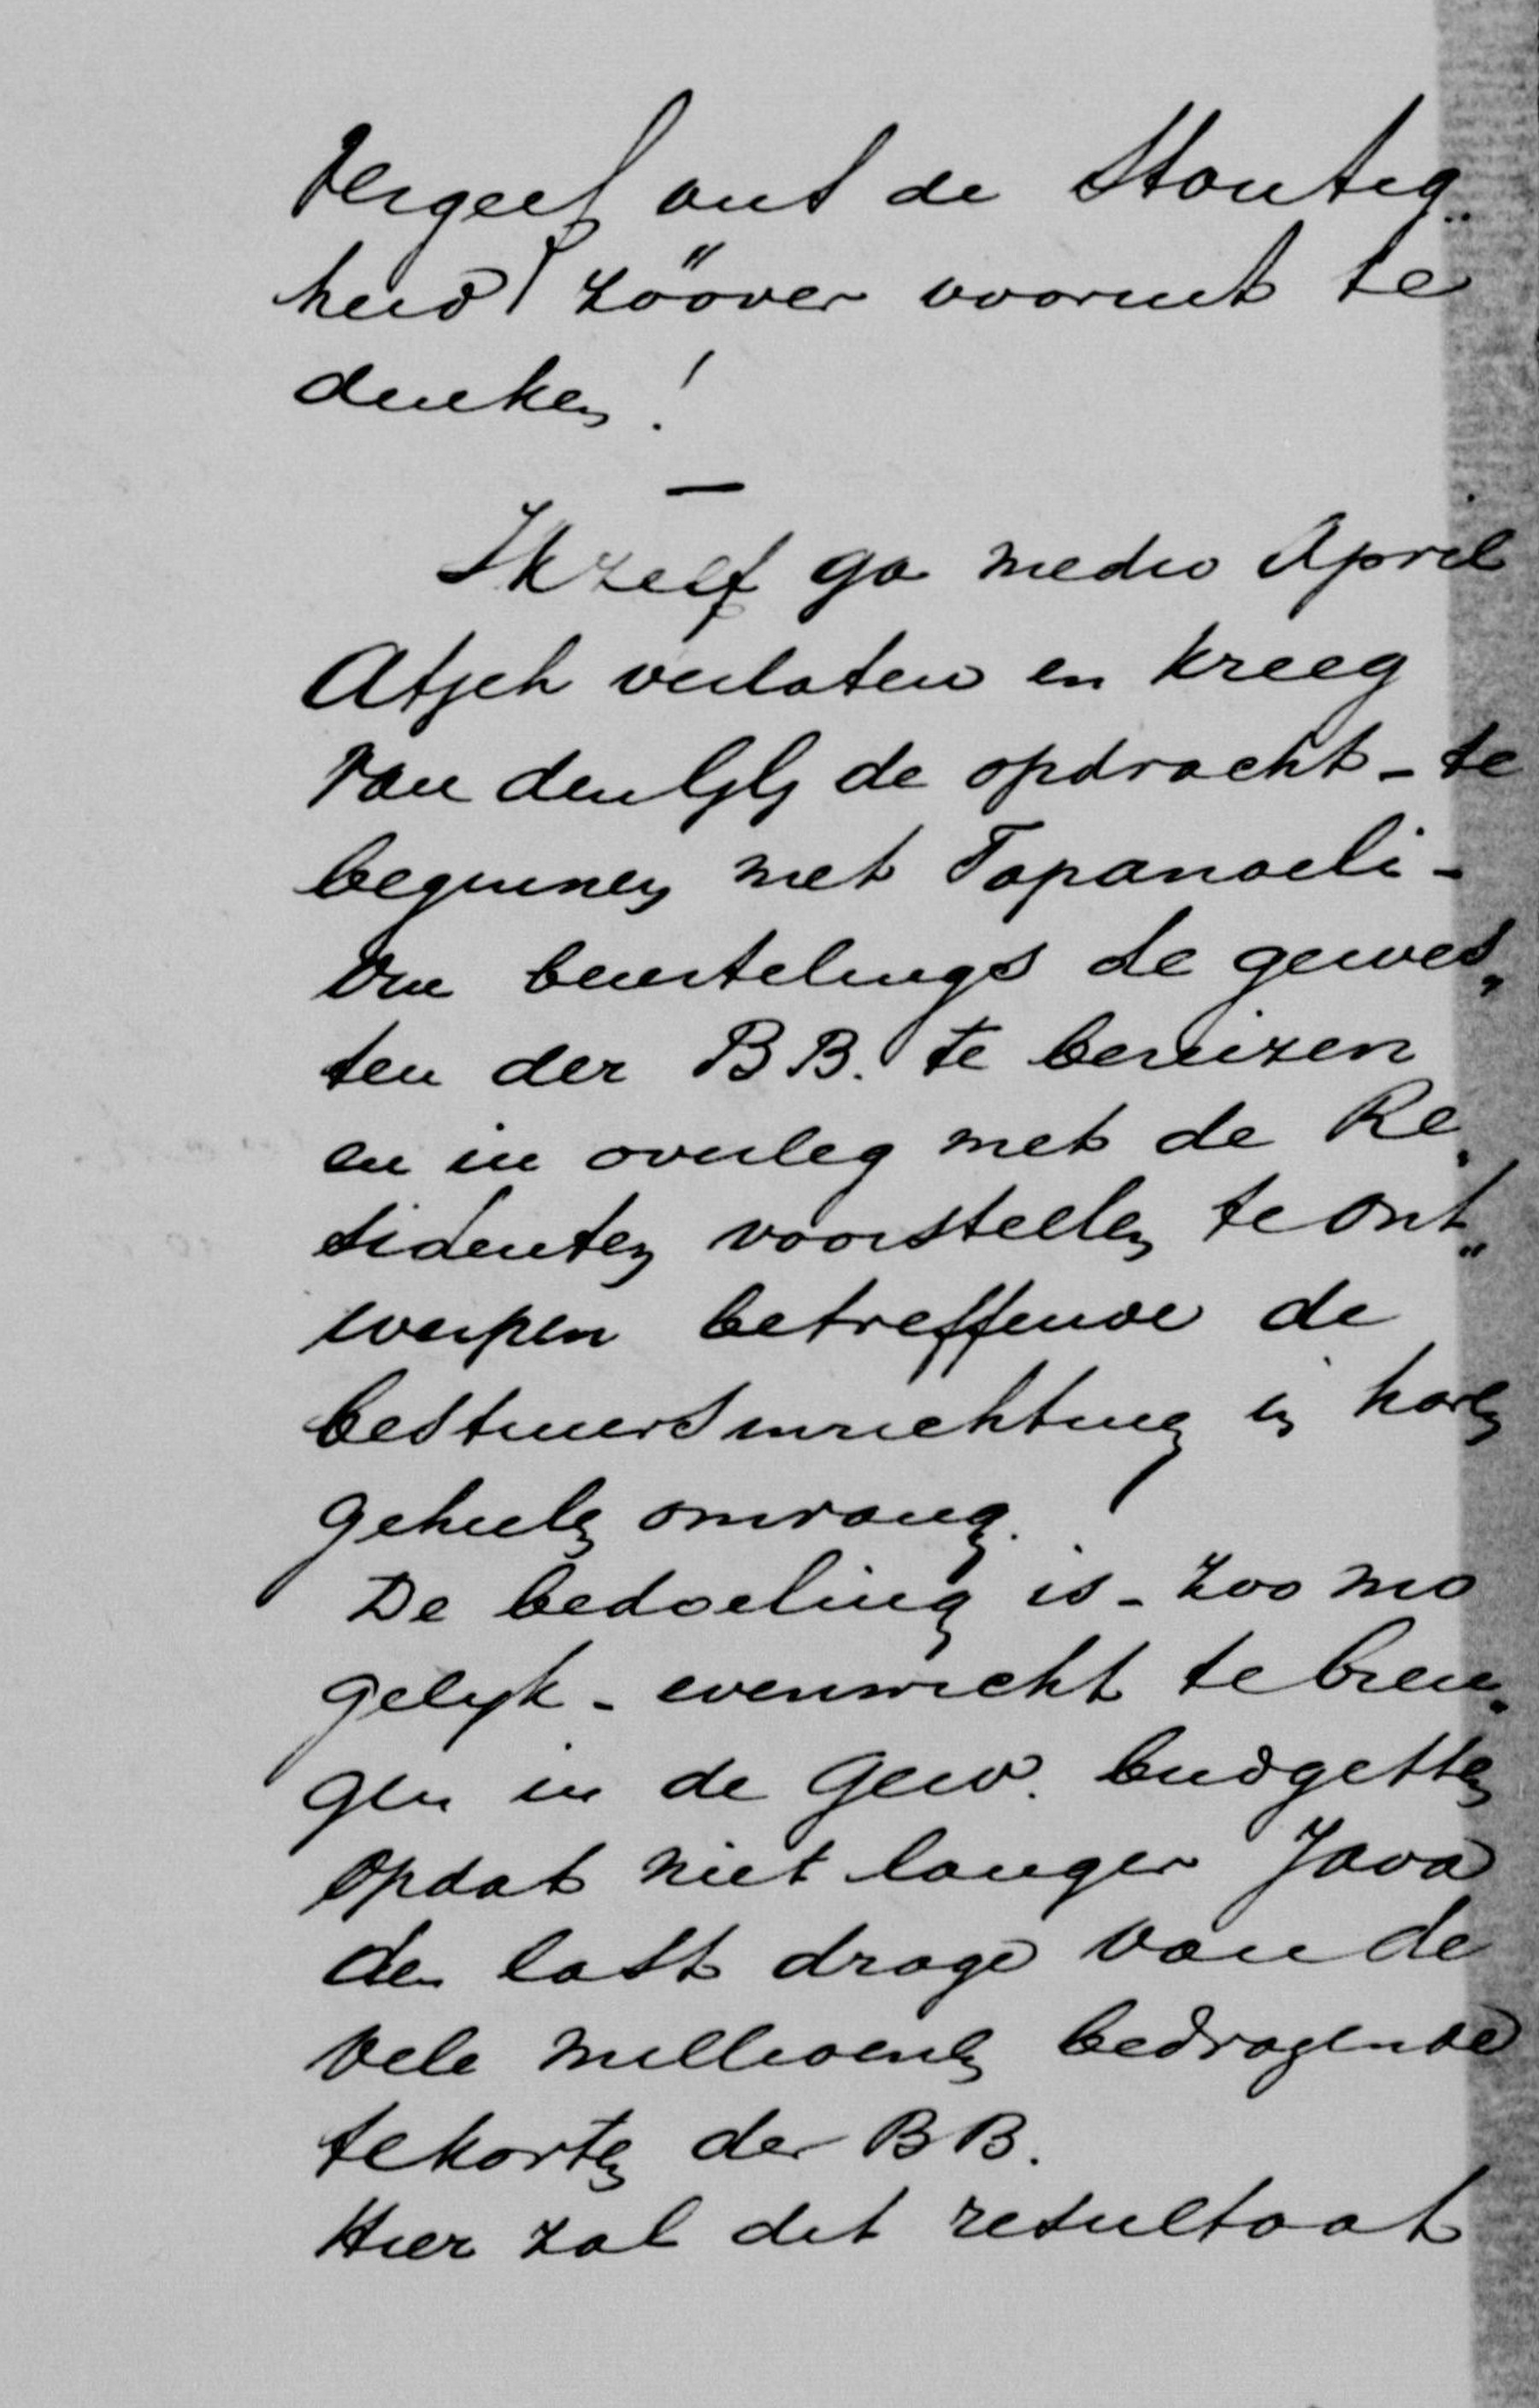 Vergeef ons de Stoutig„
heid zoover vooruit te
denken!
—
Ikzelf ga medio April
Atjeh verlaten en kreeg
van den GG de opdracht - te
beginnen met Tapanoeli -
om beurtelings de gewes„
ten der BB. te bereizen
en in overleg met de Re„
sidenten voorstellen te ont„
werpen betreffende de
bestuursinrichting in haren
geheelen omvang.
De bedoeling is - zoo mo
gelijk - evenwicht te bren„
gen in de Gew. budgetten
opdat niet langer Java
den last drage van de
vele millioenen bedragende
tekorten der BB.
Hier zal dit resultaat